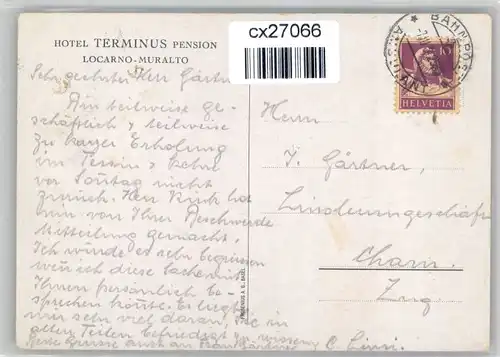 cx27066
HOTEL TERMINUS PENSION
LOCARNO-MURALTO
BAHNPOST
AMBULANT
10
HELVETIA
Sehr geehrter Herr Gärtner
Bin teilweise ge-
schäftlich & teilweise
zu kurzer Erholung
im Tessin & kehre
vor Sontag nicht
zurück. Herr Kuck hat
mir von Ihrer Beschwerde
Mitteilung gemacht,
Ich würde es sehr begrüssen
wenn ich diese Sache mit
Ihnen persönlich be-
sprechen könte. Es liegt
mir sehr viel daran, Sie in
allen Teilen befriedigt zu wissen
Beste Grüsse auch an Frau Gärtner
Herrn
J. Gärtner,
Cham.
Zug